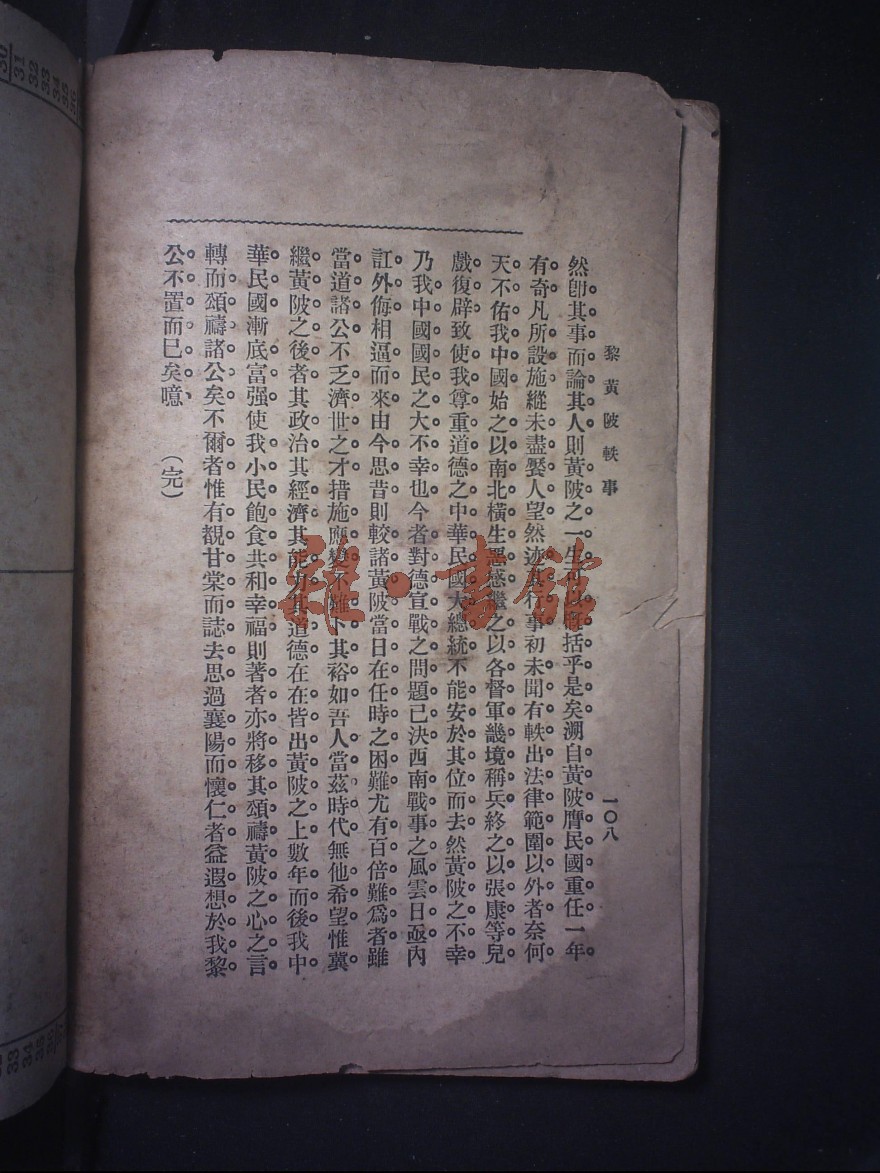 黎黃陂軼事
一〇八
然卽其事而論其人則黃陂之一生可以槪括乎是矣溯自黃陂膺民國重任一年
有奇凡所設施縱未盡饜人望然迹其行事初未聞有軼出法律範圍以外者奈何
天不佑我中國始之以南北橫生惡感繼之以各督軍畿境稱兵終之以張康等兒
戲復辟致使我尊重道德之中華民國大總統不能安於其位而去然黃陂之不幸
乃我中國國民之大不幸也今者對德宣戰之問題已決西南戰事之風雲日亟內
訌外侮相逼而來由今思昔則較諸黃陂當日在任時之困難尤有百倍難爲者雖
當道諸公不乏濟世之才措施應變不難卜其裕如吾人當茲時代無他希望惟冀
繼黃陂之後者其政治其經濟其能力其道德在在皆出黃陂之上數年而後我中
華民國漸底富强使我小民飽食共和幸福則著者亦將移其頌禱黃陂之心之言
轉而頌禱諸公矣不爾者惟有覩甘棠而誌去思過襄陽而懷仁者益遐想於我黎
公不置而已矣噫　（完）
雜·書館
30 31 32 33 34 35
33 34 35